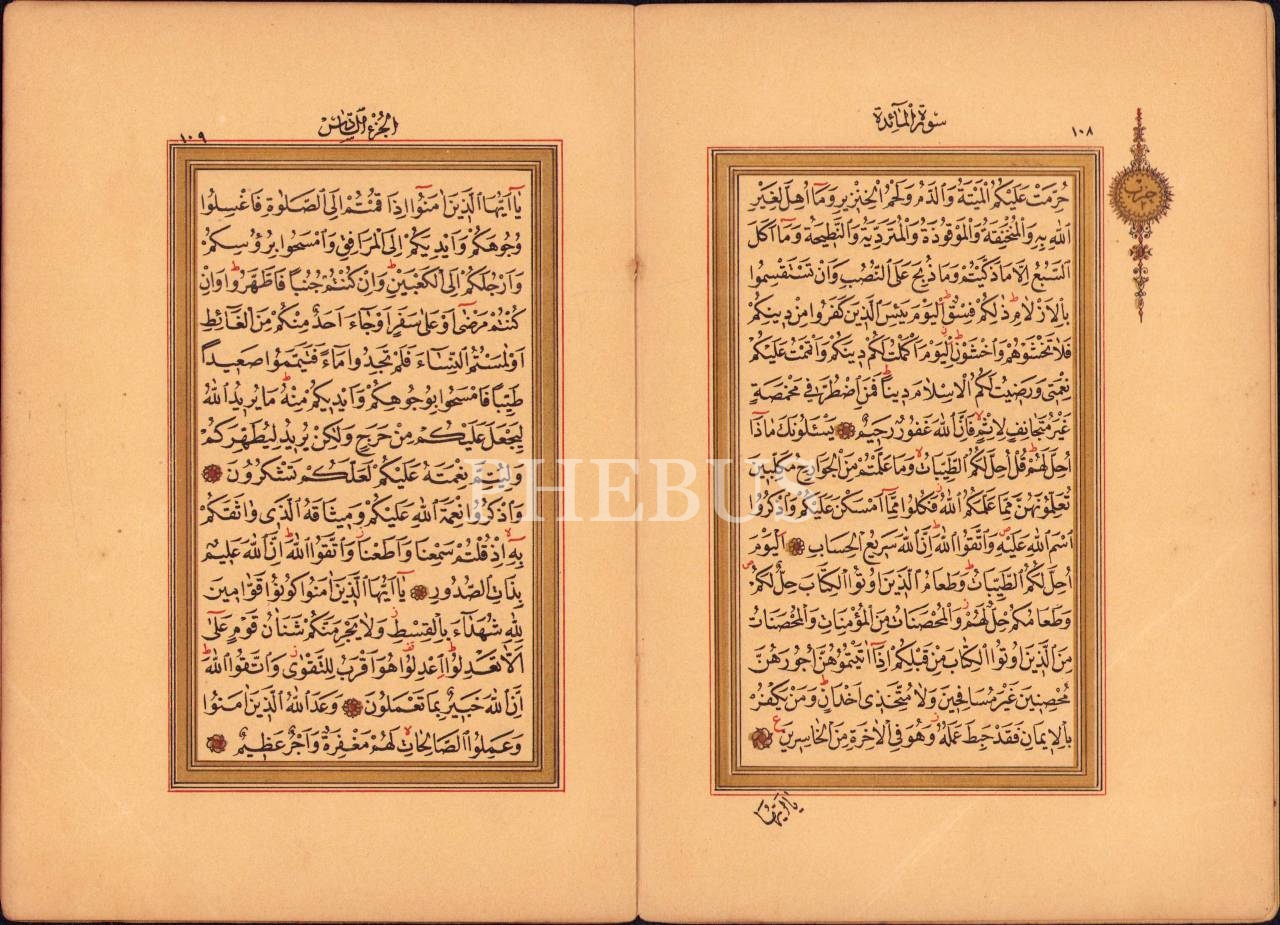 سورة المآئدة
١٠٨
حزب
حُرِّمَتْ عَلَيْكُمُ الْمَيْتَةُ وَالدَّمُ وَلَحْمُ الْخِنْزِيرِ وَمَآ اُهِلَّ لِغَيْرِ
اللّٰهِ بِهِ وَالْمُنْخَنِقَةُ وَالْمَوْقُوذَةُ وَالْمُتَرَدِّيَةُ وَالنَّطِيحَةُ وَمَآ اَكَلَ
السَّبُعُ اِلَّا مَا ذَكَّيْتُمْ وَمَا ذُبِحَ عَلَى النُّصُبِ وَاَنْ تَسْتَقْسِمُوا
بِالْاَزْلَامِ ذٰلِكُمْ فِسْقٌ اَلْيَوْمَ يَئِسَ الَّذِينَ كَفَرُوا مِنْ دِينِكُمْ
فَلَا تَخْشَوْهُمْ وَاخْشَوْنِ اَلْيَوْمَ اَكْمَلْتُ لَكُمْ دِينَكُمْ وَاَتْمَمْتُ عَلَيْكُمْ
نِعْمَتِى وَرَضِيتُ لَكُمُ الْاِسْلَامَ دِينًا فَمَنِ اضْطُرَّ فِى مَخْمَصَةٍ
غَيْرَ مُتَجَانِفٍ لِاِثْمٍ فَاِنَّ اللّٰهَ غَفُورٌ رَحِيمٌ يَسْـَٔلُونَكَ مَاذَآ
اُحِلَّ لَهُمْ قُلْ اُحِلَّ لَكُمُ الطَّيِّبَاتُ وَمَا عَلَّمْتُمْ مِنَ الْجَوَارِحِ مُكَلِّبِينَ
تُعَلِّمُونَهُنَّ مِمَّا عَلَّمَكُمُ اللّٰهُ فَكُلُوا مِمَّآ اَمْسَكْنَ عَلَيْكُمْ وَاذْكُرُوا
اسْمَ اللّٰهِ عَلَيْهِ وَاتَّقُوا اللّٰهَ اِنَّ اللّٰهَ سَرِيعُ الْحِسَابِ اَلْيَوْمَ
اُحِلَّ لَكُمُ الطَّيِّبَاتُ وَطَعَامُ الَّذِينَ اُوتُوا الْكِتَابَ حِلٌّ لَكُمْ
وَطَعَامُكُمْ حِلٌّ لَهُمْ وَالْمُحْصَنَاتُ مِنَ الْمُؤْمِنَاتِ وَالْمُحْصَنَاتُ
مِنَ الَّذِينَ اُوتُوا الْكِتَابَ مِنْ قَبْلِكُمْ اِذَآ اٰتَيْتُمُوهُنَّ اُجُورَهُنَّ
مُحْصِنِينَ غَيْرَ مُسَافِحِينَ وَلَا مُتَّخِذِى اَخْدَانٍ وَمَنْ يَكْفُرْ
بِالْاِيمَانِ فَقَدْ حَبِطَ عَمَلُهُ وَهُوَ فِى الْاٰخِرَةِ مِنَ الْخَاسِرِينَ
يَآ اَيُّهَا
الجزء السادس
١٠٩
يَآ اَيُّهَا الَّذِينَ اٰمَنُوٓا اِذَا قُمْتُمْ اِلَى الصَّلٰوةِ فَاغْسِلُوا
وُجُوهَكُمْ وَاَيْدِيَكُمْ اِلَى الْمَرَافِقِ وَامْسَحُوا بِرُؤُسِكُمْ
وَاَرْجُلَكُمْ اِلَى الْكَعْبَيْنِ وَاِنْ كُنْتُمْ جُنُبًا فَاطَّهَّرُوا وَاِنْ
كُنْتُمْ مَرْضٰٓى اَوْ عَلٰى سَفَرٍ اَوْ جَآءَ اَحَدٌ مِنْكُمْ مِنَ الْغَآئِطِ
اَوْ لٰمَسْتُمُ النِّسَآءَ فَلَمْ تَجِدُوا مَآءً فَتَيَمَّمُوا صَعِيدًا
طَيِّبًا فَامْسَحُوا بِوُجُوهِكُمْ وَاَيْدِيكُمْ مِنْهُ مَا يُرِيدُ اللّٰهُ
لِيَجْعَلَ عَلَيْكُمْ مِنْ حَرَجٍ وَلٰكِنْ يُرِيدُ لِيُطَهِّرَكُمْ
وَلِيُتِمَّ نِعْمَتَهُ عَلَيْكُمْ لَعَلَّكُمْ تَشْكُرُونَ
وَاذْكُرُوا نِعْمَةَ اللّٰهِ عَلَيْكُمْ وَمِيثَاقَهُ الَّذِى وَاثَقَكُمْ
بِهِ اِذْ قُلْتُمْ سَمِعْنَا وَاَطَعْنَا وَاتَّقُوا اللّٰهَ اِنَّ اللّٰهَ عَلِيمٌ
بِذَاتِ الصُّدُورِ يَآ اَيُّهَا الَّذِينَ اٰمَنُوا كُونُوا قَوَّامِينَ
لِلّٰهِ شُهَدَآءَ بِالْقِسْطِ وَلَا يَجْرِمَنَّكُمْ شَنَاٰنُ قَوْمٍ عَلٰٓى
اَلَّا تَعْدِلُوا اِعْدِلُوا هُوَ اَقْرَبُ لِلتَّقْوٰى وَاتَّقُوا اللّٰهَ
اِنَّ اللّٰهَ خَبِيرٌ بِمَا تَعْمَلُونَ وَعَدَ اللّٰهُ الَّذِينَ اٰمَنُوا
وَعَمِلُوا الصَّالِحَاتِ لَهُمْ مَغْفِرَةٌ وَاَجْرٌ عَظِيمٌ
PHEBUS